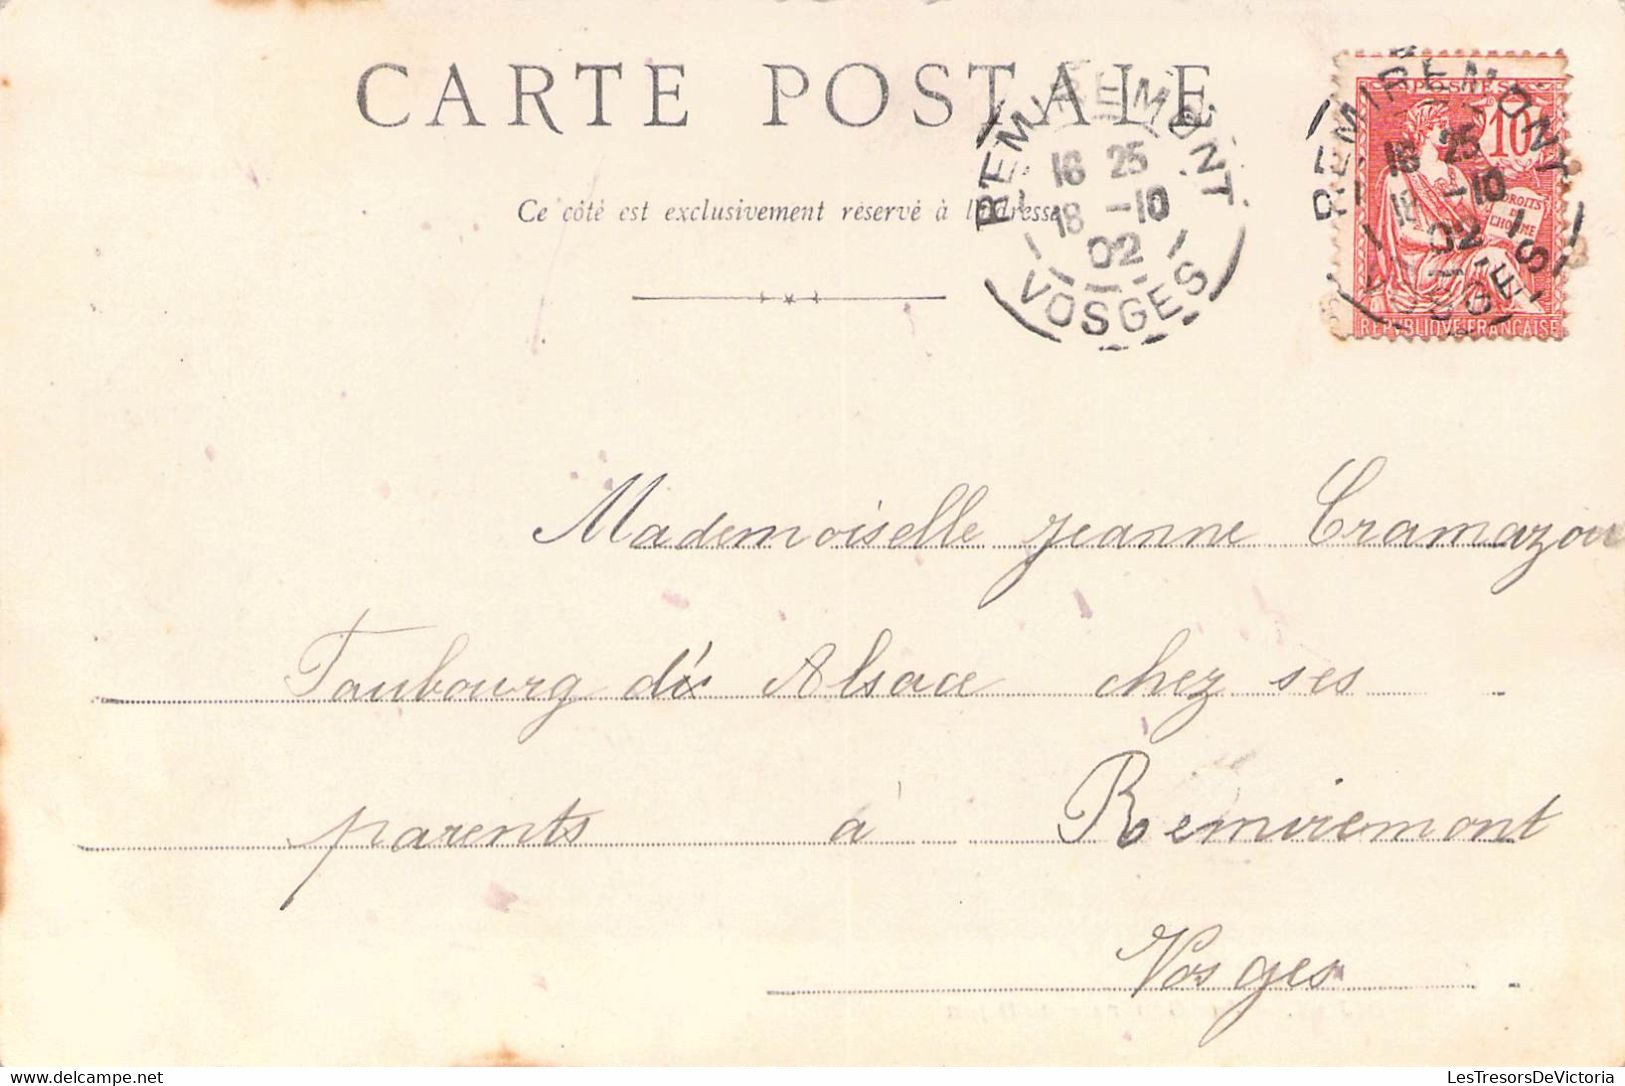 CARTE POSTALE
Ce côté est exclusivement réservé à l'adresse
REMIREMONT
16 25
18 -10
02
VOSGES
POSTES
10
DROITS
DE
L'HOMME
REPVBLIQVE FRANÇAISE
REMIREMONT
16 25
18 -10
02
VOSGES
Mademoiselle Jeanne Cramazou
Faubourg d'Alsace chez ses
parents à Remiremont
Vosges
https://www.delcampe.net
LesTresorsDeVictoria